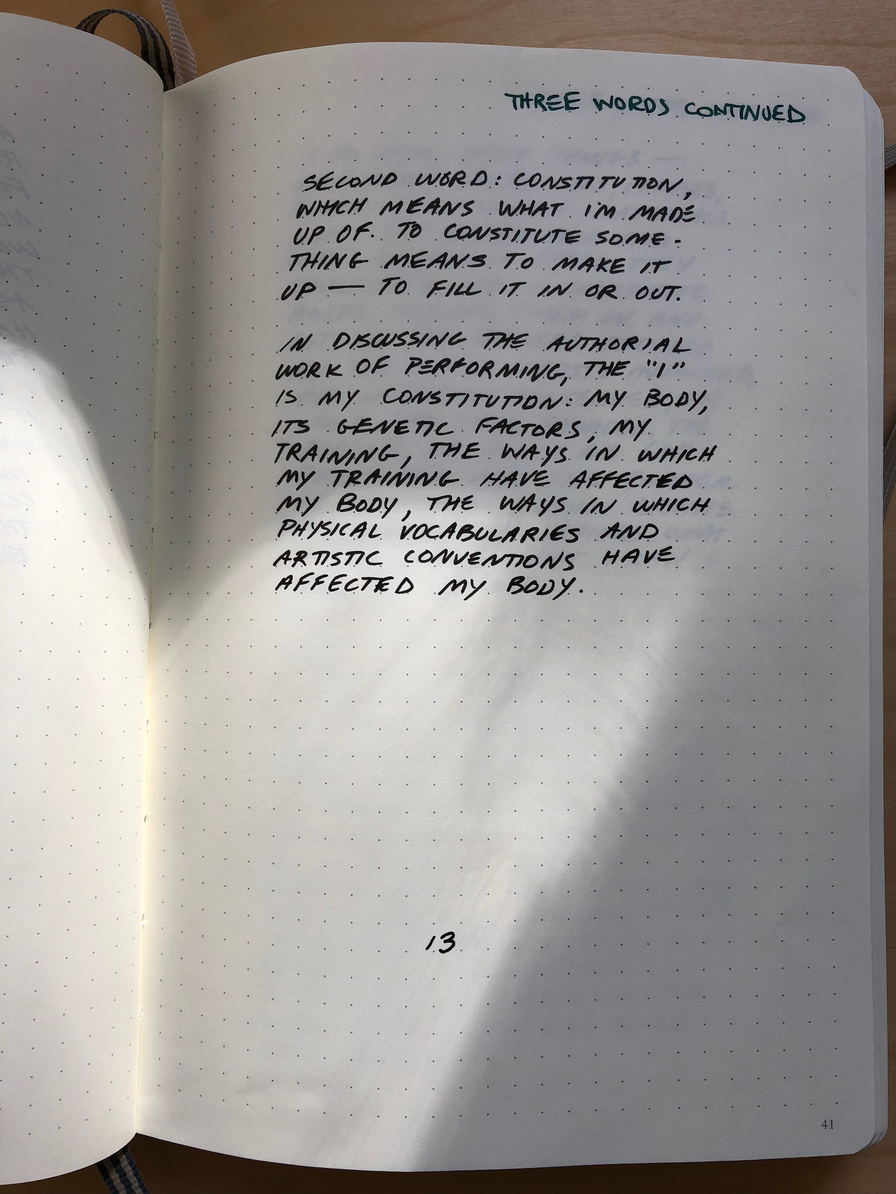 THREE WORDS CONTINUED
SECOND WORD: CONSTITUTION,
WHICH MEANS WHAT I'M MADE
UP OF. TO CONSTITUTE SOME-
THING MEANS TO MAKE IT
UP — TO FILL IT IN OR OUT.
IN DISCUSSING THE AUTHORIAL
WORK OF PERFORMING, THE "I"
IS MY CONSTITUTION: MY BODY,
ITS GENETIC FACTORS, MY
TRAINING, THE WAYS IN WHICH
MY TRAINING HAVE AFFECTED
MY BODY, THE WAYS IN WHICH
PHYSICAL VOCABULARIES AND
ARTISTIC CONVENTIONS HAVE
AFFECTED MY BODY.
13
41